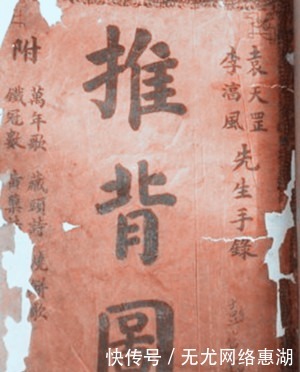 袁天罡
李淳風
先生手錄
推背圖
附
萬年歌 藏頭詩 燒餅歌
鐵冠數 黃蘗
快传号／无尤网络惠湖